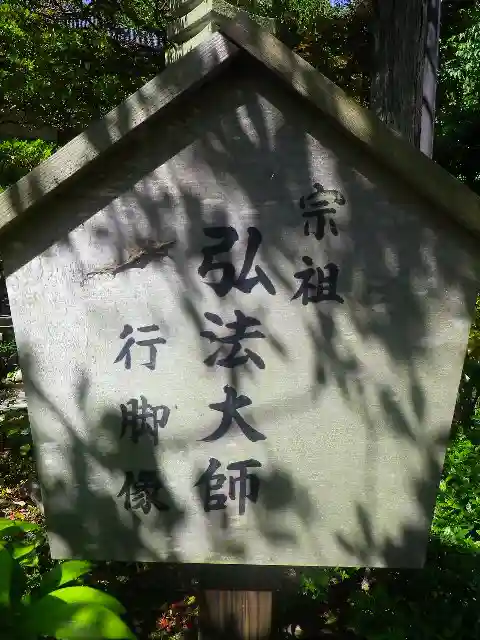 宗祖
弘法大師
行脚像